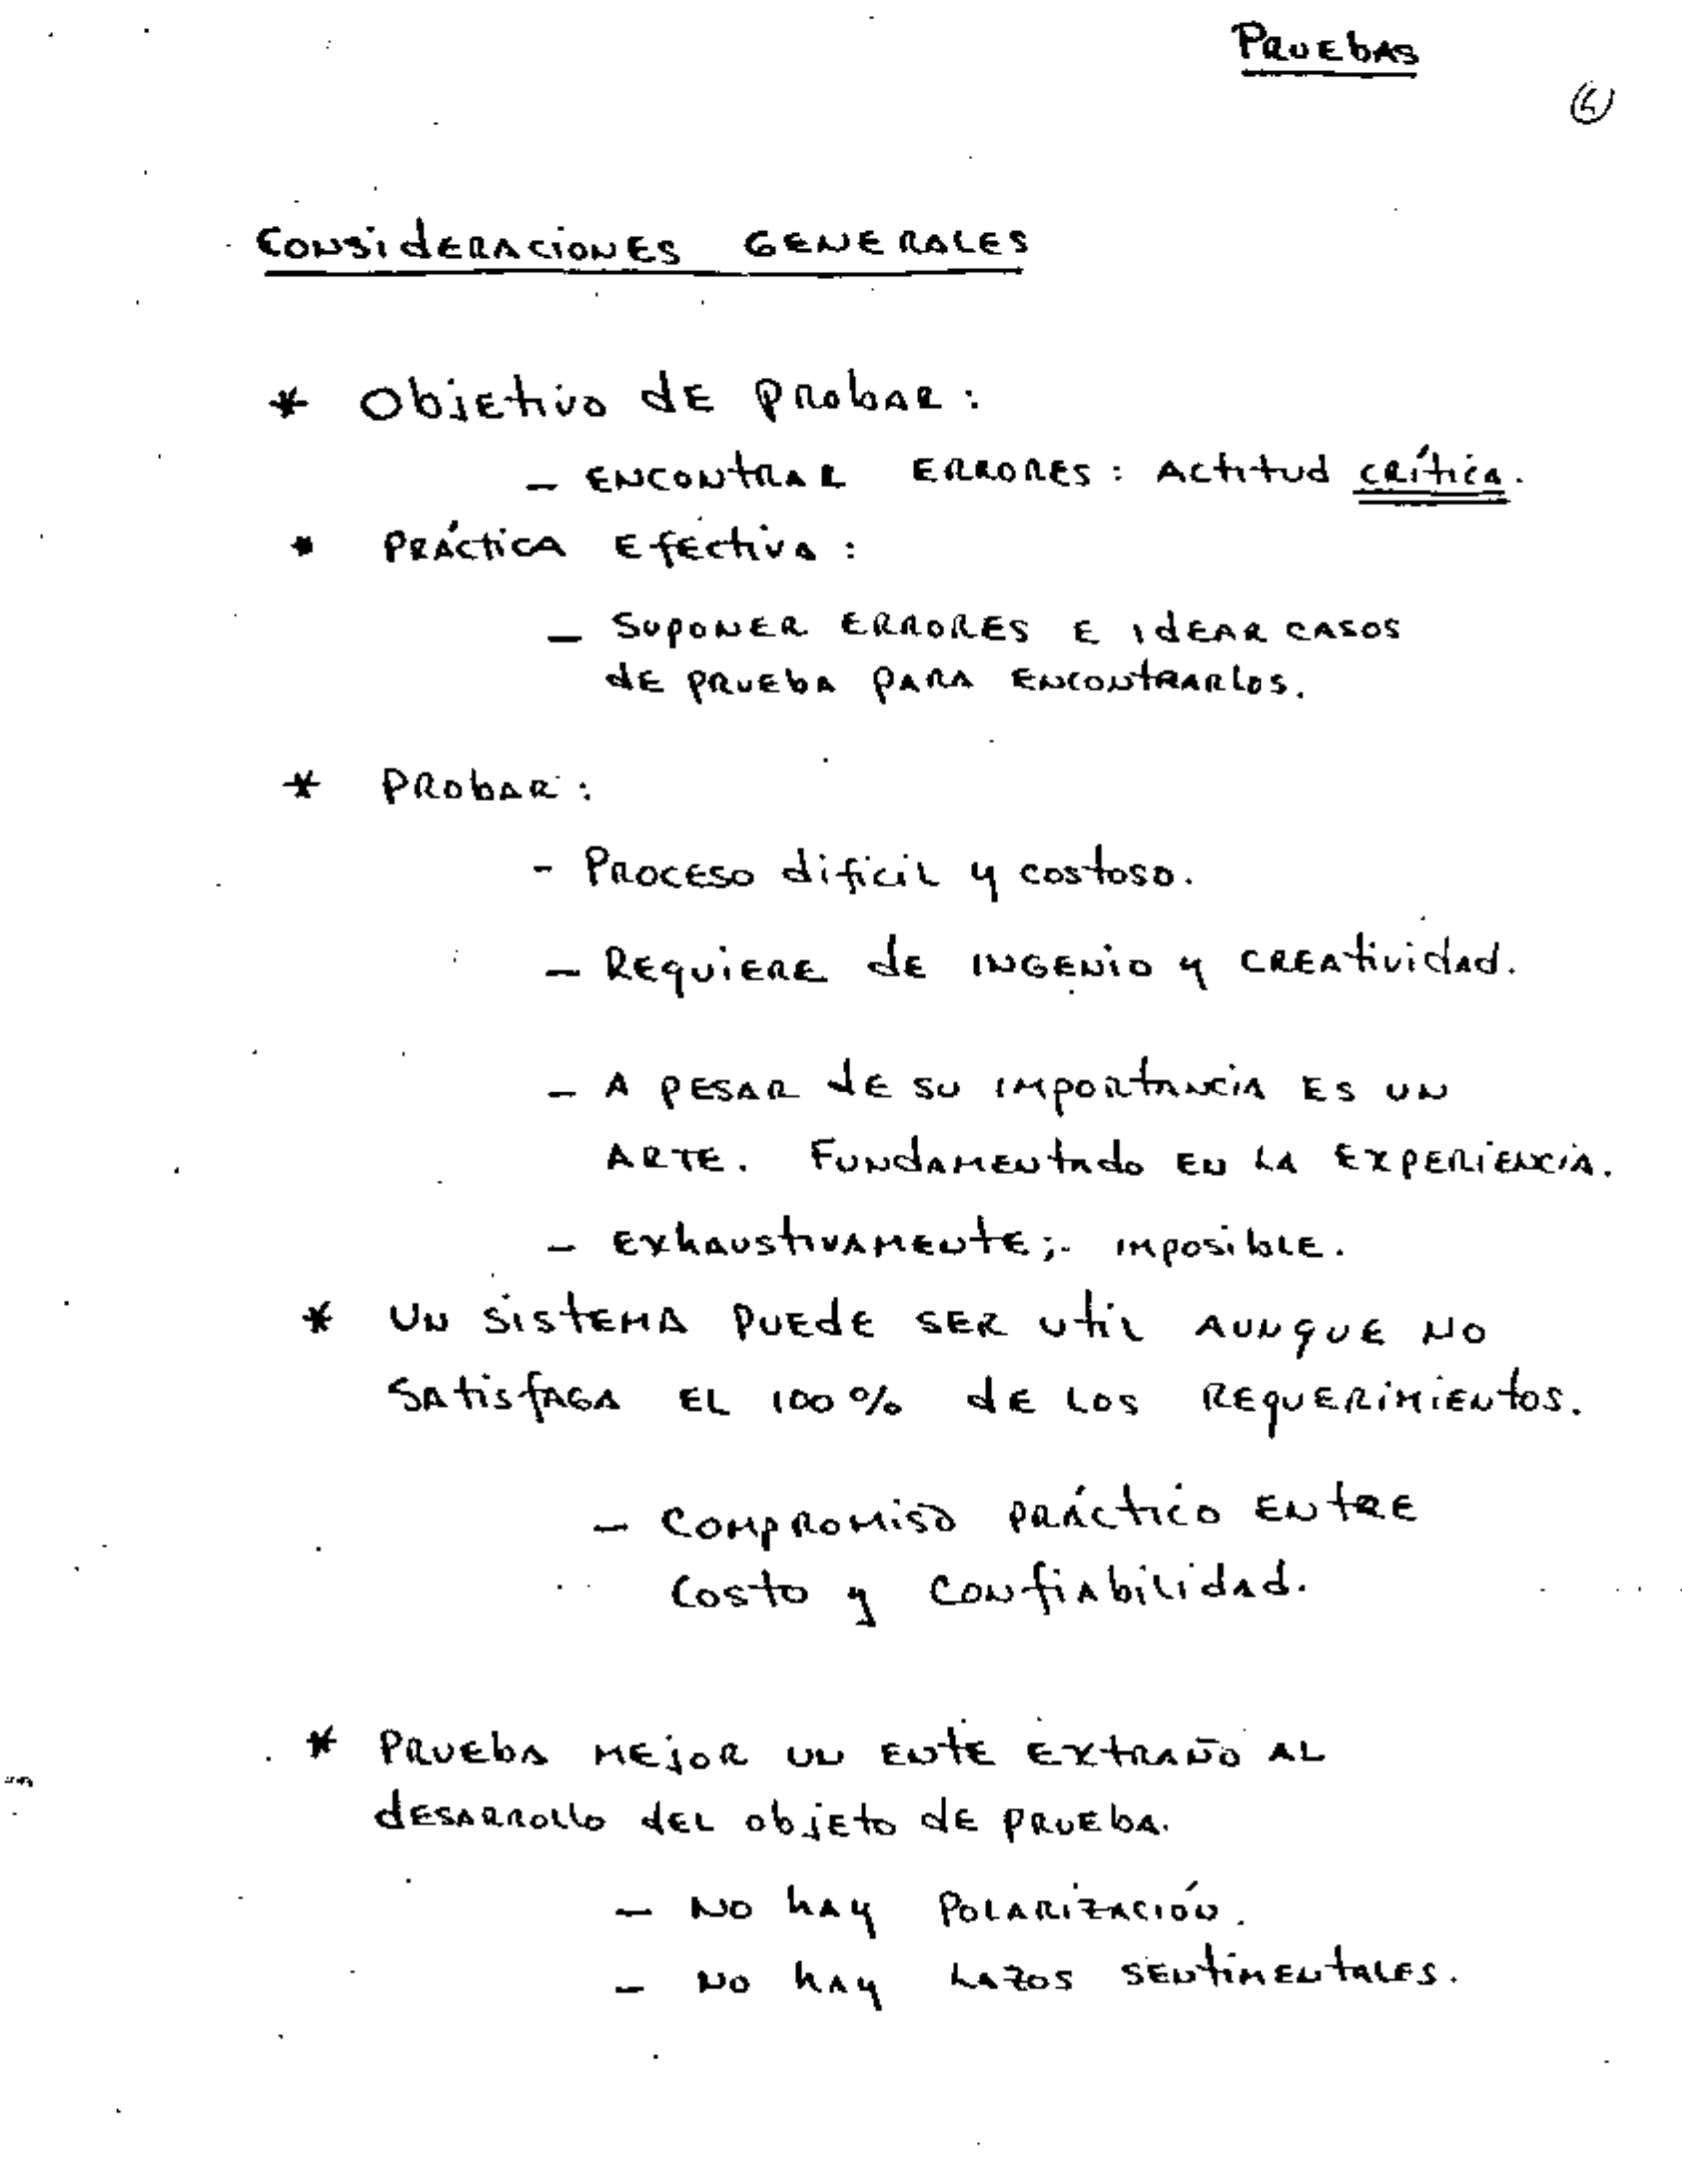 PRUEBAS
CONSIDERACIONES GENERALES
* Objetivo de probar:
- ENCONTRAR ERRORES: Actitud crítica.
* PRÁCTICA EFECTIVA:
- SUPONER ERRORES E IDEAR CASOS
DE PRUEBA PARA ENCONTRARLOS.
* PROBAR:
- PROCESO dificil y costoso.
- REQUIERE DE INGENIO y CREATIVIDAD.
- A PESAR DE SU IMPORTANCIA ES UN
ARTE. FUNDAMENTADO EN LA EXPERIENCIA.
- EXHAUSTIVAMENTE;- IMPOSIBLE.
* UN SISTEMA PUEDE SER UTIL AUNQUE NO
SATISFAGA EL 100% DE LOS REQUERIMIENTOS.
- COMPROMISO PRÁCTICO ENTRE
COSTO y CONFIABILIDAD.
* PRUEBA MEJOR UN ENTE EXTRAÑO AL
DESARROLLO DEL OBJETO DE PRUEBA.
- NO HAY POLARIZACIÓN.
- NO HAY LAZOS SENTIMENTALES.